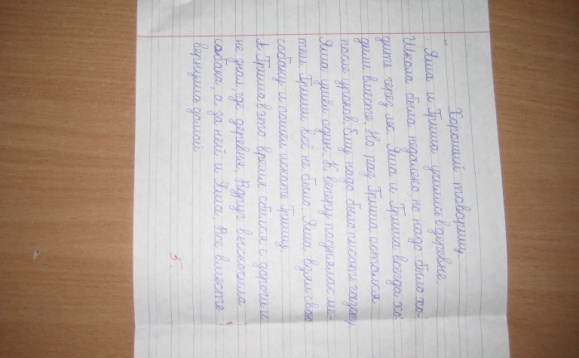 Хороший товарищ
Яша и Гриша учились в деревне
Школа была недалеко, но надо было хо-
дить через лес. Яша и Гриша всегда хо-
дили вместе. Но раз Гриша остался
после уроков. Ему надо было писать газету.
Яша ушёл один. К вечеру поднялась ме-
тель. Гриши всё не было. Яша взял свою
собаку и пошёл искать Гришу.
А Гриша в это время сбился с дороги и
не знал, где деревня. Вдруг выскочила
собака, а за ней и Яша. Все вместе
вернулись домой.
5.